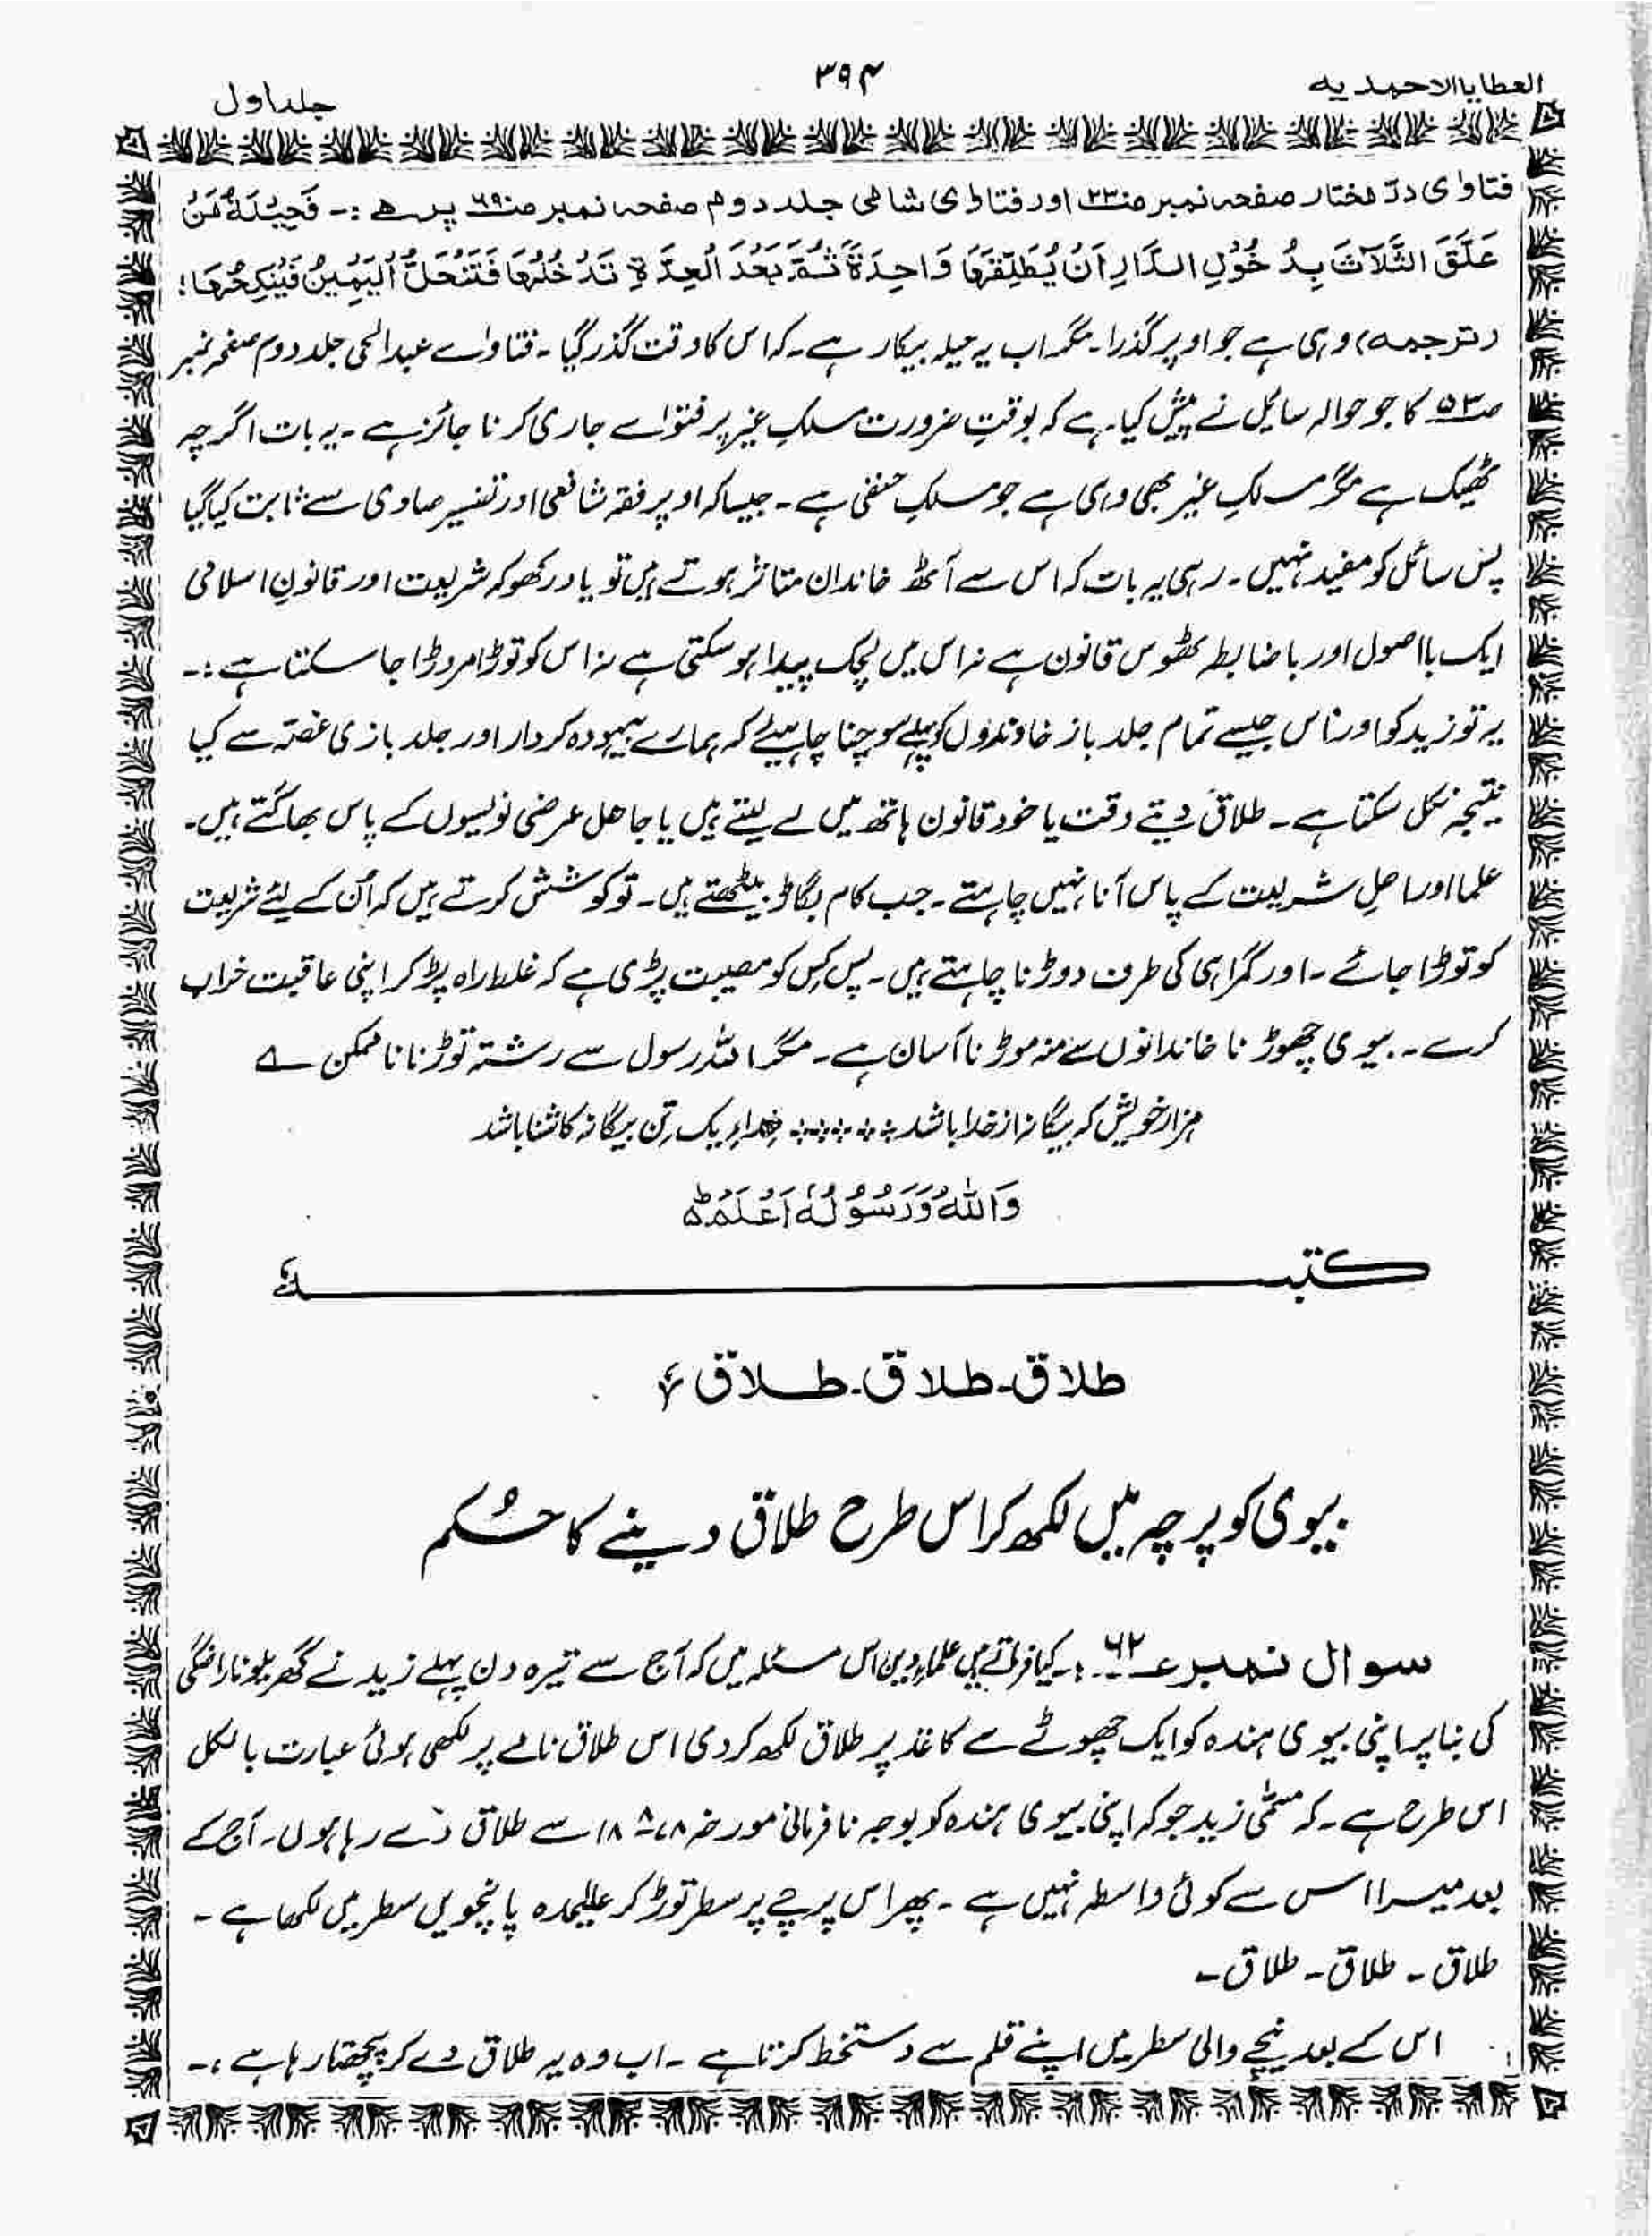 العطایا الاحمدیہ
۳۹۴
جلد اول
فتاوٰی درّ مختار صفحہ نمبر صـ۲۳ـ اور فتاوٰی شامی جلد دوم صفحہ نمبر صـ۶۹ـ پر ہے :۔ فَحِیْلَۃُ مَنْ
عَلَّقَ الثَّلَاثَ بِدُخُوْلِ الدَّارِ اَنْ یُّطَلِّقَھَا وَاحِدَۃً ثُمَّ بَعْدَ الْعِدَّۃِ تَدْخُلُھَا فَتَنْحَلُّ الْیَمِیْنُ فَیَنْکِحُھَا؛
(ترجمہ) وہی ہے جو اوپر گذرا۔ مگر اب یہ حیلہ بیکار ہے۔ کہ اس کا وقت گذر گیا ۔ فتاواے عبدالحی جلد دوم صفحہ نمبر
صـ۵۳ـ کا جو حوالہ سائل نے پیش کیا ہے کہ بوقتِ ضرورت مسلکِ غیر پر فتواے جاری کرنا جائز ہے ۔ یہ بات اگرچہ
ٹھیک ہے مگر مسلکِ غیر بھی وہی ہے جو مسلکِ حنفی ہے ۔ جیسا کہ اوپر فقہ شافعی اور تفسیر صاوی سے ثابت کیا گیا
پس سائل کو مفید نہیں ۔ رہی یہ بات کہ اس سے آٹھ خاندان متاثر ہوتے ہیں تو یاد رکھو کہ شریعت اور قانونِ اسلامی
ایک بااصول اور باضابطہ ٹھوس قانون ہے نہ اس میں لچک پیدا ہو سکتی ہے نہ اس کو توڑا مروڑا جا سکتا ہے :۔
یہ تو زید کو اور اس جیسے تمام جلد باز خاوندوں کو پہلے سوچنا چاہیئے کہ ہمارے بیہودہ کردار اور جلد بازی غصّہ سے کیا
نتیجہ نکل سکتا ہے ۔ طلاق دیتے وقت یا خود قانون ہاتھ میں لے لیتے ہیں یا جاھل عرضی نویسوں کے پاس بھاگتے ہیں۔
علما اور اھلِ شریعت کے پاس آنا نہیں چاہتے ۔ جب کام بگاڑ بیٹھتے ہیں ۔ تو کوشش کرتے ہیں کہ اُن کے لئے شریعت
کو توڑا جائے ۔ اور گمراہی کی طرف دوڑنا چاہتے ہیں ۔ پس کس کو مصیبت پڑی ہے کہ غلط راہ پڑ کر اپنی عاقبت خراب
کرے ۔ بیوی چھوڑنا خاندانوں سے منہ موڑنا آسان ہے ۔ مگر اللہ رسول سے رشتہ توڑنا ناممکن ہے
ہزار خویش کہ بیگانہ از خدا باشد فداءِ یک تن بیگانہ کاشنا باشد
وَاللّٰہُ وَرَسُوْلُہٗ اَعْلَمُ
کتبہ
طلاق۔ طلاق۔ طلاق
بیوی کو پرچہ میں لکھ کر اس طرح طلاق دینے کا حُکم
سوال نمبر ۶۲ :۔ کیا فرماتے ہیں علماءِ دین اس مسئلہ میں کہ آج سے تیرہ دن پہلے زید نے گھریلو ناراضگی
کی بنا پر اپنی بیوی ہندہ کو ایک چھوٹے سے کاغذ پر طلاق لکھ کر دی اس طلاق نامے پر لکھی ہوئی عبارت بالکل
اس طرح ہے ۔ کہ مسمّٰی زید جو کہ اپنی بیوی ہندہ کو بوجہ نافرمانی مورخہ سے طلاق دے رہا ہوں ۔ آج کے
بعد میرا اس سے کوئی واسطہ نہیں ہے ۔ پھر اس پرچے پر سطر توڑ کر علیحدہ پانچویں سطر میں لکھا ہے ۔
طلاق ۔ طلاق ۔ طلاق ۔
اس کے بعد نیچے والی سطر میں اپنے قلم سے دستخط کرتا ہے ۔ اب وہ یہ طلاق دے کر پچھتا رہا ہے :۔